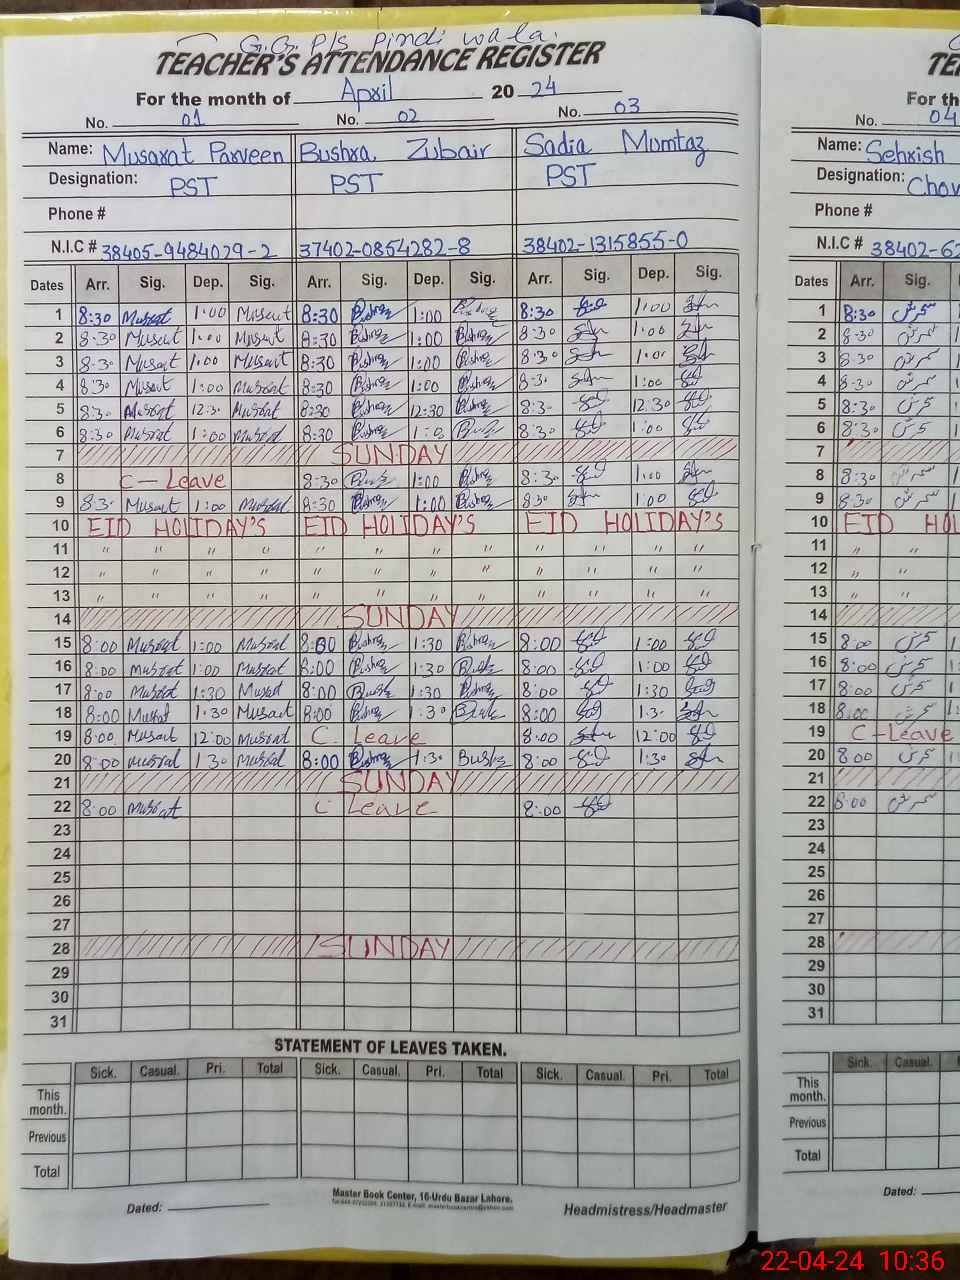 G.G. P/S Pindi wala.
TEACHER'S ATTENDANCE REGISTER
For the month of April 20 24
No. 01 No. 02 No. 03
Name: Musarat Parveen Bushra Zubair Sadia Mumtaz
Designation: PST PST PST
Phone #
N.I.C # 38405-9484029-2 37402-0854282-8 38402-1315855-0
Dates Arr. Sig. Dep. Sig. Arr. Sig. Dep. Sig. Arr. Sig. Dep. Sig.
1 8:30 Musarat 1:00 Musarat 8:30 Bushra 1:00 Bushra 8:30 1:00
2 8:30 Musarat 1:00 Musarat 8:30 Bushra 1:00 Bushra 8:30 1:00
3 8:30 Musarat 1:00 Musarat 8:30 Bushra 1:00 Bushra 8:30 1:00
4 8:30 Musarat 1:00 Musarat 8:30 Bushra 1:00 Bushra 8:30 1:00
5 8:30 Musarat 12:30 Musarat 8:30 Bushra 12:30 Bushra 8:30 12:30
6 8:30 Musarat 1:00 Musarat 8:30 Bushra 1:00 Bushra 8:30 1:00
7 SUNDAY
8 C-Leave 8:30 Bushra 1:00 Bushra 8:30 1:00
9 8:30 Musarat 1:00 Musarat 8:30 Bushra 1:00 Bushra 8:30 1:00
10 EID HOLIDAY'S EID HOLIDAY'S EID HOLIDAY'S
11 " " " " " " " " " " " "
12 " " " " " " " " " " " "
13 " " " " " " " " " " " "
14 SUNDAY
15 8:00 Musarat 1:00 Musarat 8:00 Bushra 1:30 Bushra 8:00 1:00
16 8:00 Musarat 1:00 Musarat 8:00 Bushra 1:30 Bushra 8:00 1:00
17 8:00 Musarat 1:30 Musarat 8:00 Bushra 1:30 Bushra 8:00 1:30
18 8:00 Musarat 1:30 Musarat 8:00 Bushra 1:30 Bushra 8:00 1:30
19 8:00 Musarat 12:00 Musarat C. Leave 8:00 12:00
20 8:00 Musarat 1:30 Musarat 8:00 Bushra 1:30 Bushra 8:00 1:30
21 SUNDAY
22 8:00 Musarat C Leave 8:00
23
24
25
26
27
28 SUNDAY
29
30
31
STATEMENT OF LEAVES TAKEN.
Sick. Casual. Pri. Total Sick. Casual. Pri. Total Sick. Casual. Pri. Total
This month.
Previous
Total
Dated:
Master Book Center, 16-Urdu Bazar Lahore.
Headmistress/Headmaster
For th
No. 04
Name: Sehrish
Designation:
Phone #
N.I.C # 38402-62
Dates Arr. Sig.
1 8:30 سحرش
2 8:30 سحرش
3 8:30 سحرش
4 8:30 سحرش
5 8:30 سحرش
6 8:30 سحرش
7
8 8:30 سحرش
9 8:30 سحرش
10 EID HOL
11 " "
12 " "
13 " "
14
15 8:00 سحرش
16 8:00 سحرش
17 8:00 سحرش
18 8:00 سحرش
19 C-Leave
20 8:00 سحرش
21
22 8:00 سحرش
23
24
25
26
27
28
29
30
31
Sick. Casual.
This month.
Previous
Total
Dated:
22-04-24 10:36